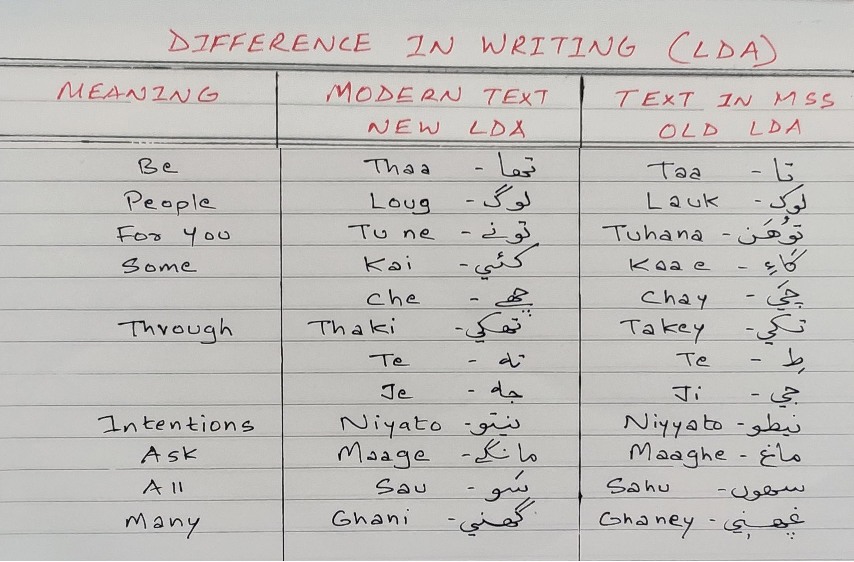 DIFFERENCE IN WRITING (LDA)
MEANING MODERN TEXT NEW LDA TEXT IN MSS OLD LDA
Be Thaa - تھا Taa - تا
People Loug - لوگ Lauk - لوک
For you Tu ne - تونے Tuhana - توُهَن
Some Kai - کئي Kaae - کَاءِ
Che - چھے Chay - چَي
Through Thaki - تھکي Takey - تکي
Te - تہ Te - طِ
Je - جہ Ji - جي
Intentions Niyato - نيتو Niyyato - نيطو
Ask Maage - مانگے Maaghe - ماغ
All Sau - سَو Sahu - سھوں
Many Ghani - گھني Ghaney -